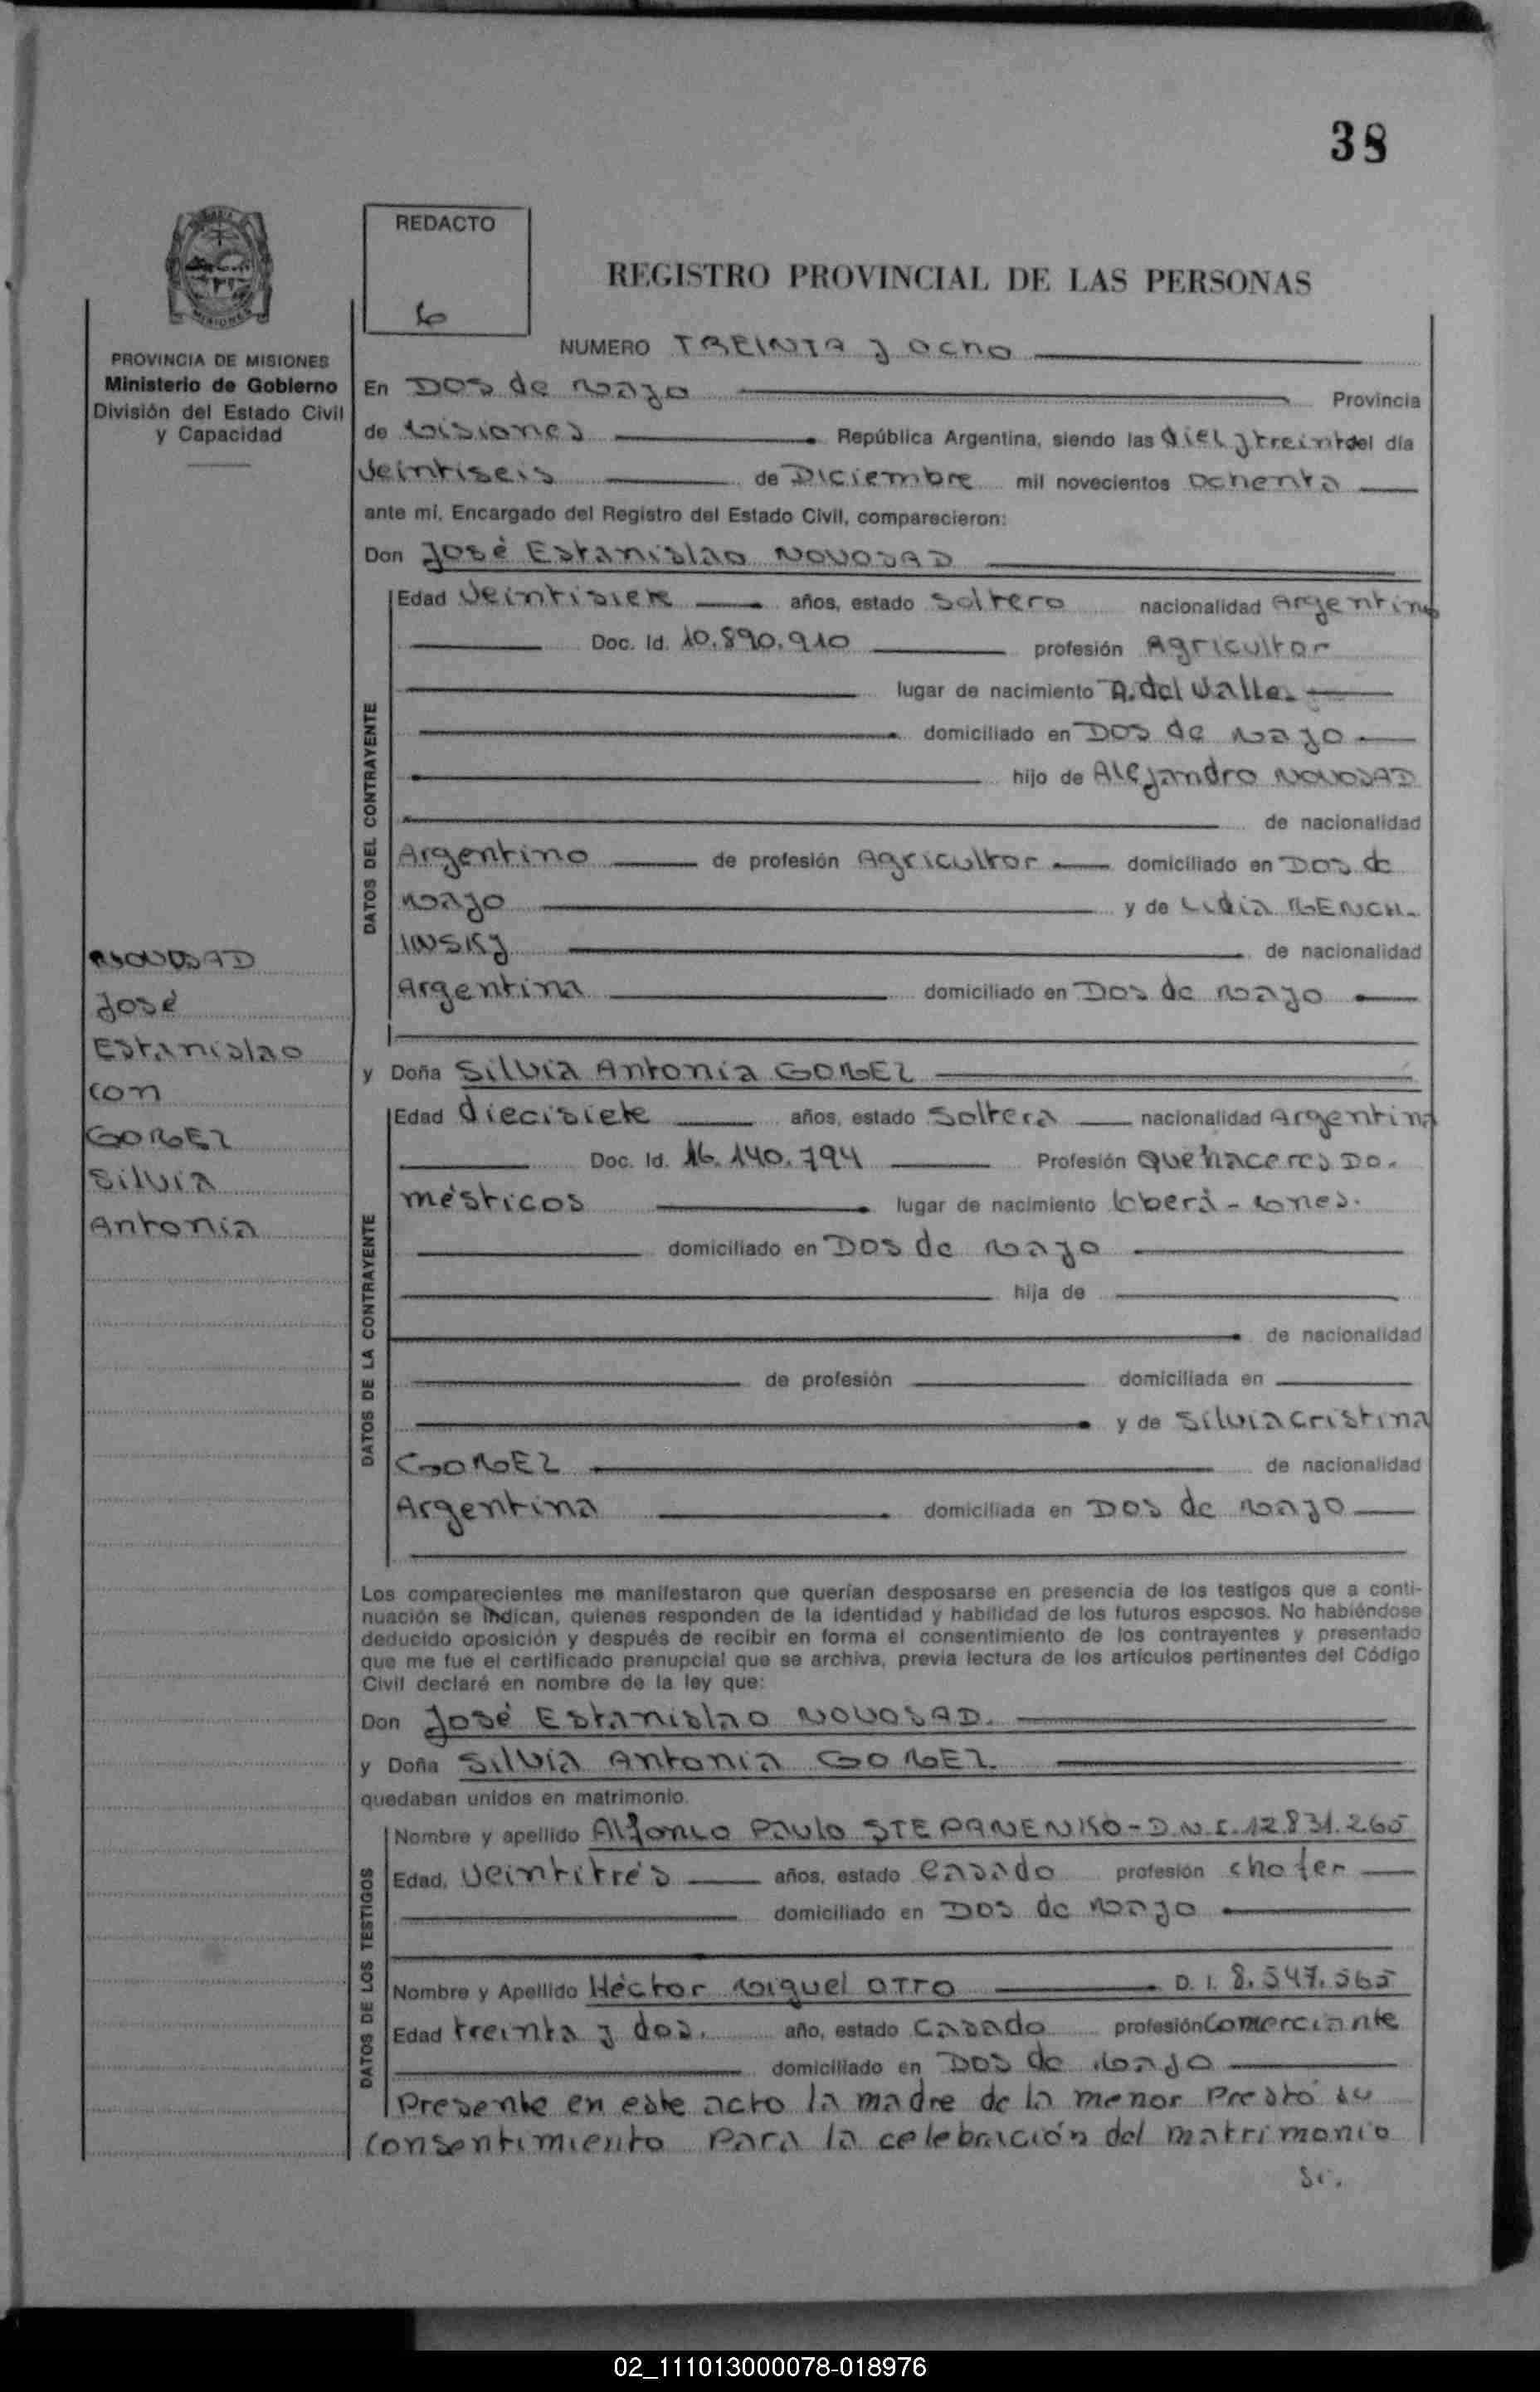 38
REDACTO
6
REGISTRO PROVINCIAL DE LAS PERSONAS
PROVINCIA DE MISIONES
Ministerio de Gobierno
División del Estado Civil
y Capacidad
NUMERO TREINTA y ocho
En DOS de Mayo Provincia
de Misiones República Argentina, siendo las diez y treinta del día
veintiseis de Diciembre mil novecientos ochenta
ante mí, Encargado del Registro del Estado Civil, comparecieron:
Don José Estanislao NOVOSAD
Edad veintisiete años, estado soltero nacionalidad Argentino
Doc. Id. 10.890.910 profesión Agricultor
lugar de nacimiento A. del Valle.
domiciliado en DOS de Mayo
hijo de Alejandro NOVOSAD
de nacionalidad
Argentino de profesión Agricultor domiciliado en Dos de
Mayo y de Lidia MENCH-
INSKY de nacionalidad
Argentina domiciliado en Dos de Mayo
NOVOSAD
José
Estanislao
con
GOMEZ
Silvia
Antonia
y Doña Silvia Antonia GOMEZ
Edad diecisiete años, estado Soltera nacionalidad Argentina
Doc. Id. 16.140.794 Profesión Quehaceres Do-
mésticos lugar de nacimiento Oberá - Mnes.
domiciliado en Dos de Mayo
hija de
de nacionalidad
de profesión domiciliada en
y de Silvia Cristina
GOMEZ de nacionalidad
Argentina domiciliada en Dos de Mayo
DATOS DEL CONTRAYENTE
DATOS DE LA CONTRAYENTE
Los comparecientes me manifestaron que querían desposarse en presencia de los testigos que a conti-
nuación se indican, quienes responden de la identidad y habilidad de los futuros esposos. No habiéndose
deducido oposición y después de recibir en forma el consentimiento de los contrayentes y presentado
que me fue el certificado prenupcial que se archiva, previa lectura de los artículos pertinentes del Código
Civil declaré en nombre de la ley que:
Don José Estanislao NOVOSAD.
y Doña Silvia Antonia GOMEZ.
quedaban unidos en matrimonio.
Nombre y apellido Alfonso Paulo STEPANENKO - D.N.I. 12.831.265
Edad, veintitrés años, estado Casado profesión chofer
domiciliado en Dos de Mayo
Nombre y Apellido Héctor Miguel OTTO D. I. 8.547.565
Edad treinta y dos. año, estado Casado profesión Comerciante
domiciliado en Dos de Mayo
DATOS DE LOS TESTIGOS
Presente en este acto la madre de la menor Prestó su
consentimiento Para la celebración del matrimonio
02_111013000078-018976